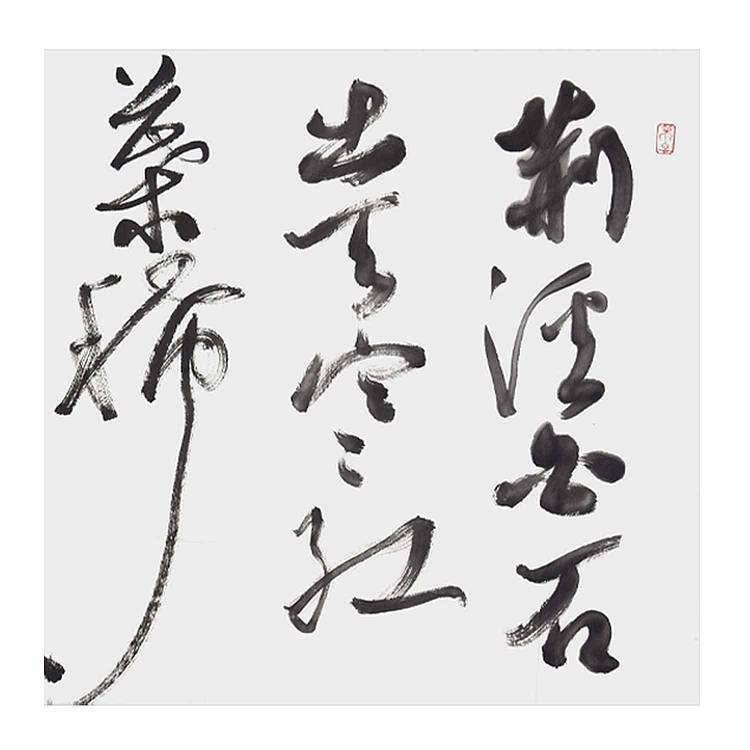 荆溪白石
出天寒紅
葉稀